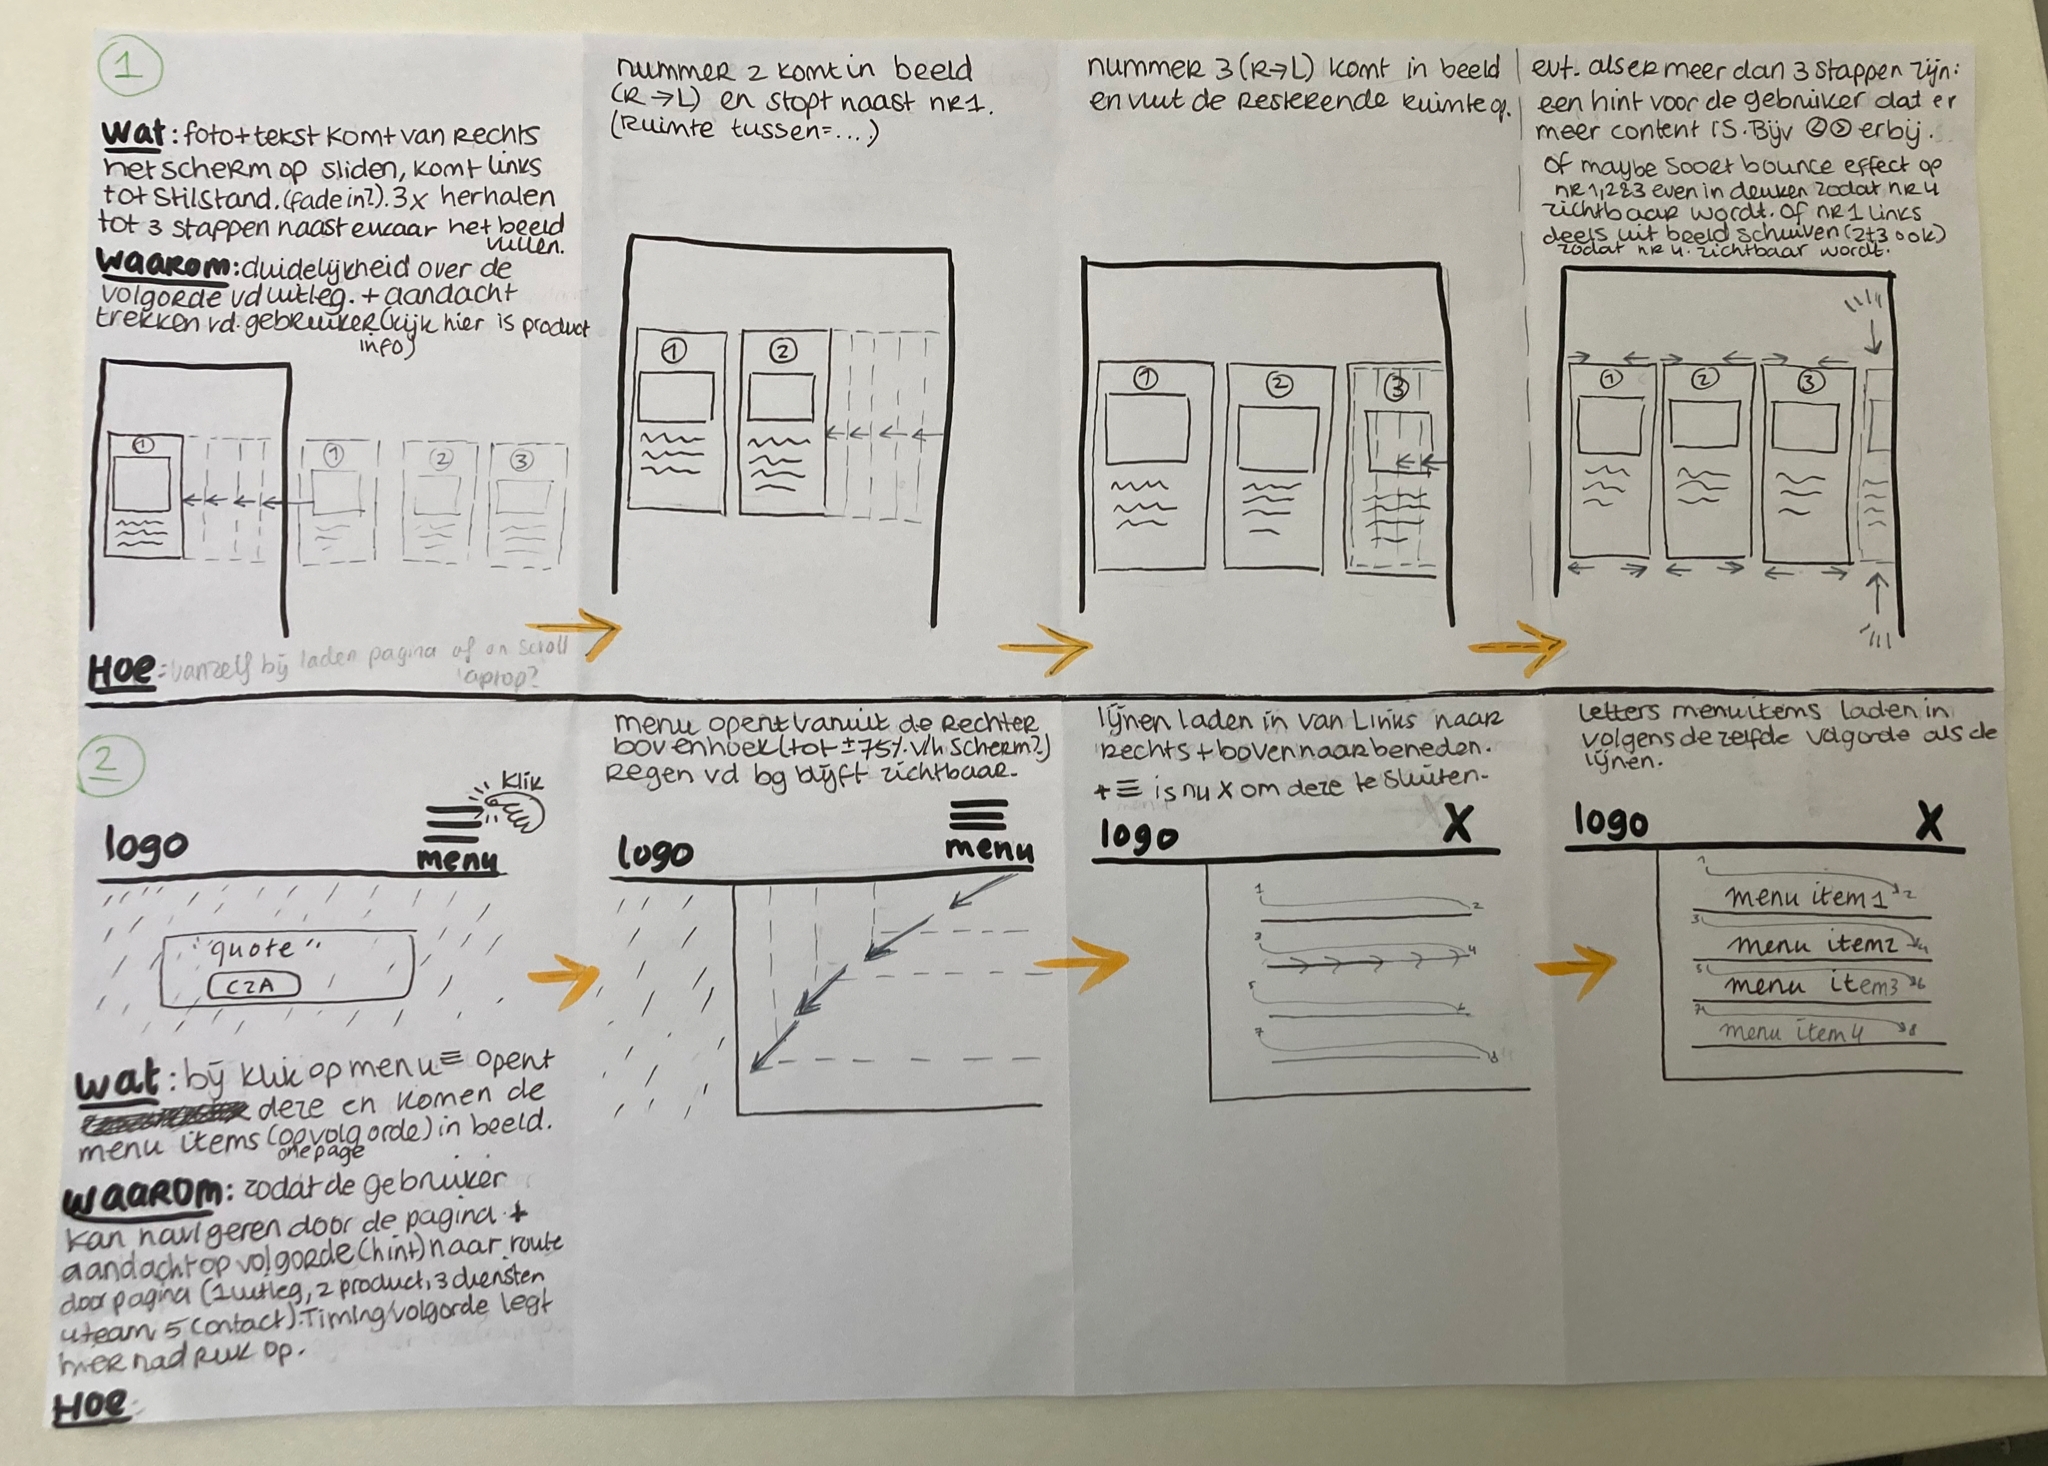 1
wat: foto+tekst komt van rechts
het scherm op sliden, komt links
tot stilstand. (fade in?). 3x herhalen
tot 3 stappen naast elkaar het beeld
vullen.
waarom: duidelijkheid over de
volgorde vd uitleg. + aandacht
trekken vd. gebruiker (kijk hier is product
info)
1
1
2
3
HOE: vanzelf bij laden pagina of on scroll
laptop?
nummer 2 komt in beeld
(R→L) en stopt naast nr 1.
(Ruimte tussen=...)
1
2
nummer 3 (R→L) komt in beeld
en vult de resterende ruimte op.
1
2
3
evt. als er meer dan 3 stappen zijn:
een hint voor de gebruiker dat er
meer content is. Bijv < > erbij.
of maybe soort bounce effect op
nr 1, 2 & 3 even in deuken zodat nr 4
zichtbaar wordt. of nr 1 links
deels uit beeld schuiven (2+3 ook)
zodat nr 4. zichtbaar wordt.
1
2
3
2
Klik
logo
menu
"quote"
CTA
wat: bij klik op menu ≡ opent
deze en komen de
menu items (op volgorde) in beeld.
onepage
waarom: zodat de gebruiker
kan navigeren door de pagina +
aandacht op volgorde (hint) naar route
door pagina (1 uitleg, 2 product, 3 diensten
4 team 5 contact). Timing/volgorde legt
hier nadruk op.
HOE:
menu opent vanuit de rechter
bovenhoek (tot ±75% v/h scherm?)
Regen vd bg blijft zichtbaar.
logo
menu
lijnen laden in van Links naar
rechts + boven naar beneden.
+ ≡ is nu X om deze te sluiten.
logo X
1 2
3 4
5 6
7 8
letters menuitems laden in
volgens dezelfde volgorde als de
lijnen.
logo X
1 menu item 1 2
3 menu item 2 4
5 menu item 3 6
7 menu item 4 8